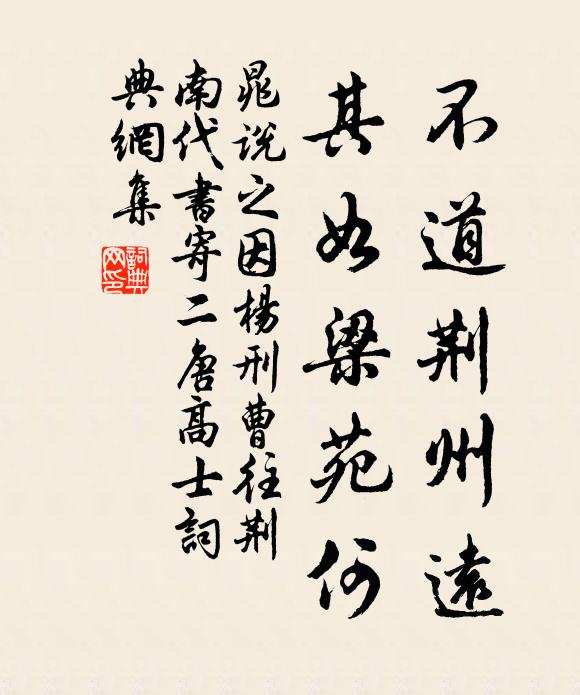 不道荆州遠
其如梁苑何
晁説之因楊刑曹往荆
南代書寄二唐高士詞
典網集
詞典
网印